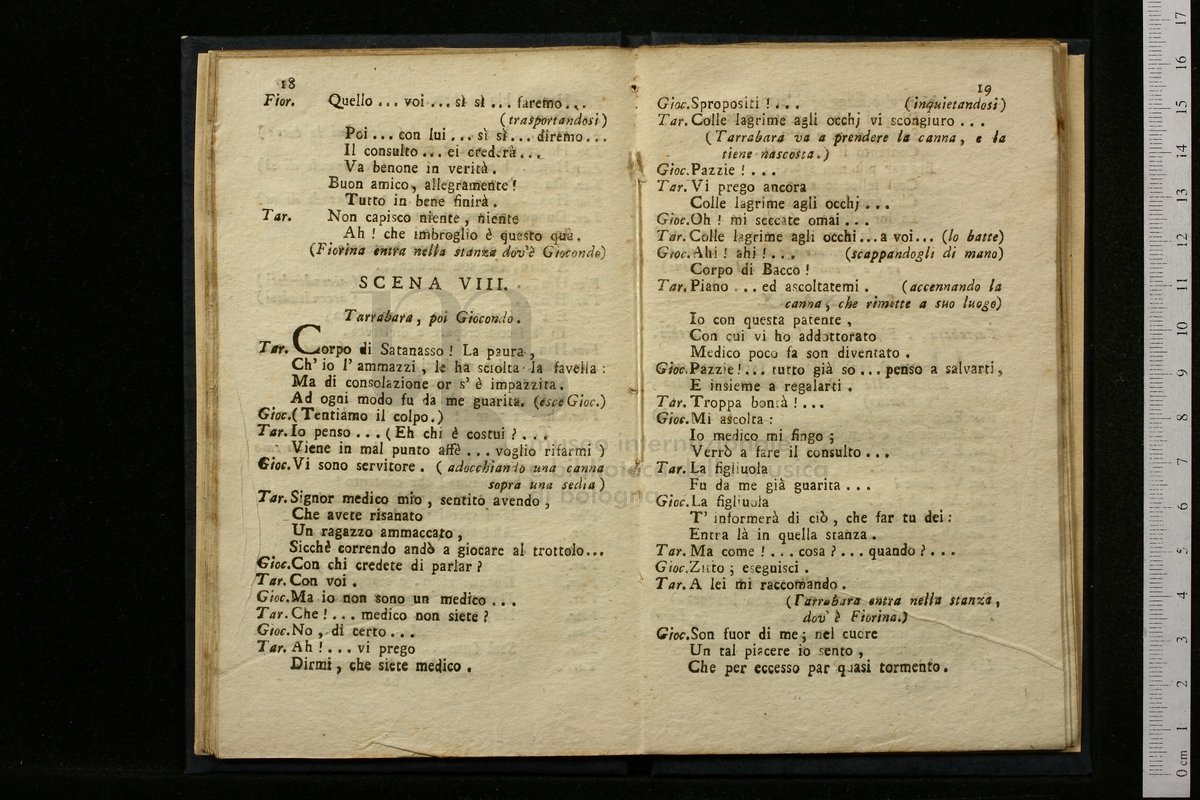 18
Fior. Quello ... voi ... sì sì ... faremo ...
(trasportandosi)
Poi ... con lui ... sì sì ... diremo ...
Il consulto ... ei crederà ...
Va benone in verità.
Buon amico, allegramente!
Tutto in bene finirà.
Tar. Non capisco niente, niente
Ah! che imbroglio è questo quà.
(Fiorina entra nella stanza dov'è Giocondo)
SCENA VIII.
Tarrabara, poi Giocondo.
Tar. Corpo di Satanasso! La paura,
Ch' io l' ammazzi, le ha sciolta la favella:
Ma di consolazione or s' è impazzita.
Ad ogni modo fu da me guarita. (esce Gioc.)
Gioc. (Tentiamo il colpo.)
Tar. Io penso ... (Eh chi è costui? ...
Viene in mal punto affè ... voglio rifarmi)
Gioc. Vi sono servitore. (adocchiando una canna
sopra una sedia)
Tar. Signor medico mio, sentito avendo,
Che avete risanato
Un ragazzo ammaccato,
Sicchè correndo andò a giocare al trottolo...
Gioc. Con chi credete di parlar?
Tar. Con voi.
Gioc. Ma io non sono un medico ...
Tar. Che! ... medico non siete?
Gioc. No, di certo ...
Tar. Ah! ... vi prego
Dirmi, che siete medico.
19
Gioc. Spropositi! ... (inquietandosi)
Tar. Colle lagrime agli occhj vi scongiuro ...
(Tarrabara va a prendere la canna, e la
tiene nascosta.)
Gioc. Pazzie! ...
Tar. Vi prego ancora
Colle lagrime agli occhj ...
Gioc. Oh! mi seccate omai ...
Tar. Colle lagrime agli occhi ... a voi ... (lo batte)
Gioc. Ahi! ahi! ... (scappandogli di mano)
Corpo di Bacco!
Tar. Piano ... ed ascoltatemi. (accennando la
canna, che rimette a suo luogo)
Io con questa patente,
Con cui vi ho addottorato
Medico poco fa son diventato.
Gioc. Pazzie! ... tutto già so ... penso a salvarti,
E insieme a regalarti.
Tar. Troppa bontà! ...
Gioc. Mi ascolta:
Io medico mi fingo;
Verrò a fare il consulto ...
Tar. La figliuola
Fu da me già guarita ...
Gioc. La figliuola
T' informerà di ciò, che far tu dei:
Entra là in quella stanza.
Tar. Ma come! ... cosa? ... quando? ...
Gioc. Zitto; eseguisci.
Tar. A lei mi raccomando.
(Tarrabara entra nella stanza,
dov' è Fiorina.)
Gioc. Son fuor di me; nel cuore
Un tal piacere io sento,
Che per eccesso par quasi tormento.
museo internazionale
e biblioteca della musica
di bologna
0 cm 1 2 3 4 5 6 7 8 9 10 11 12 13 14 15 16 17